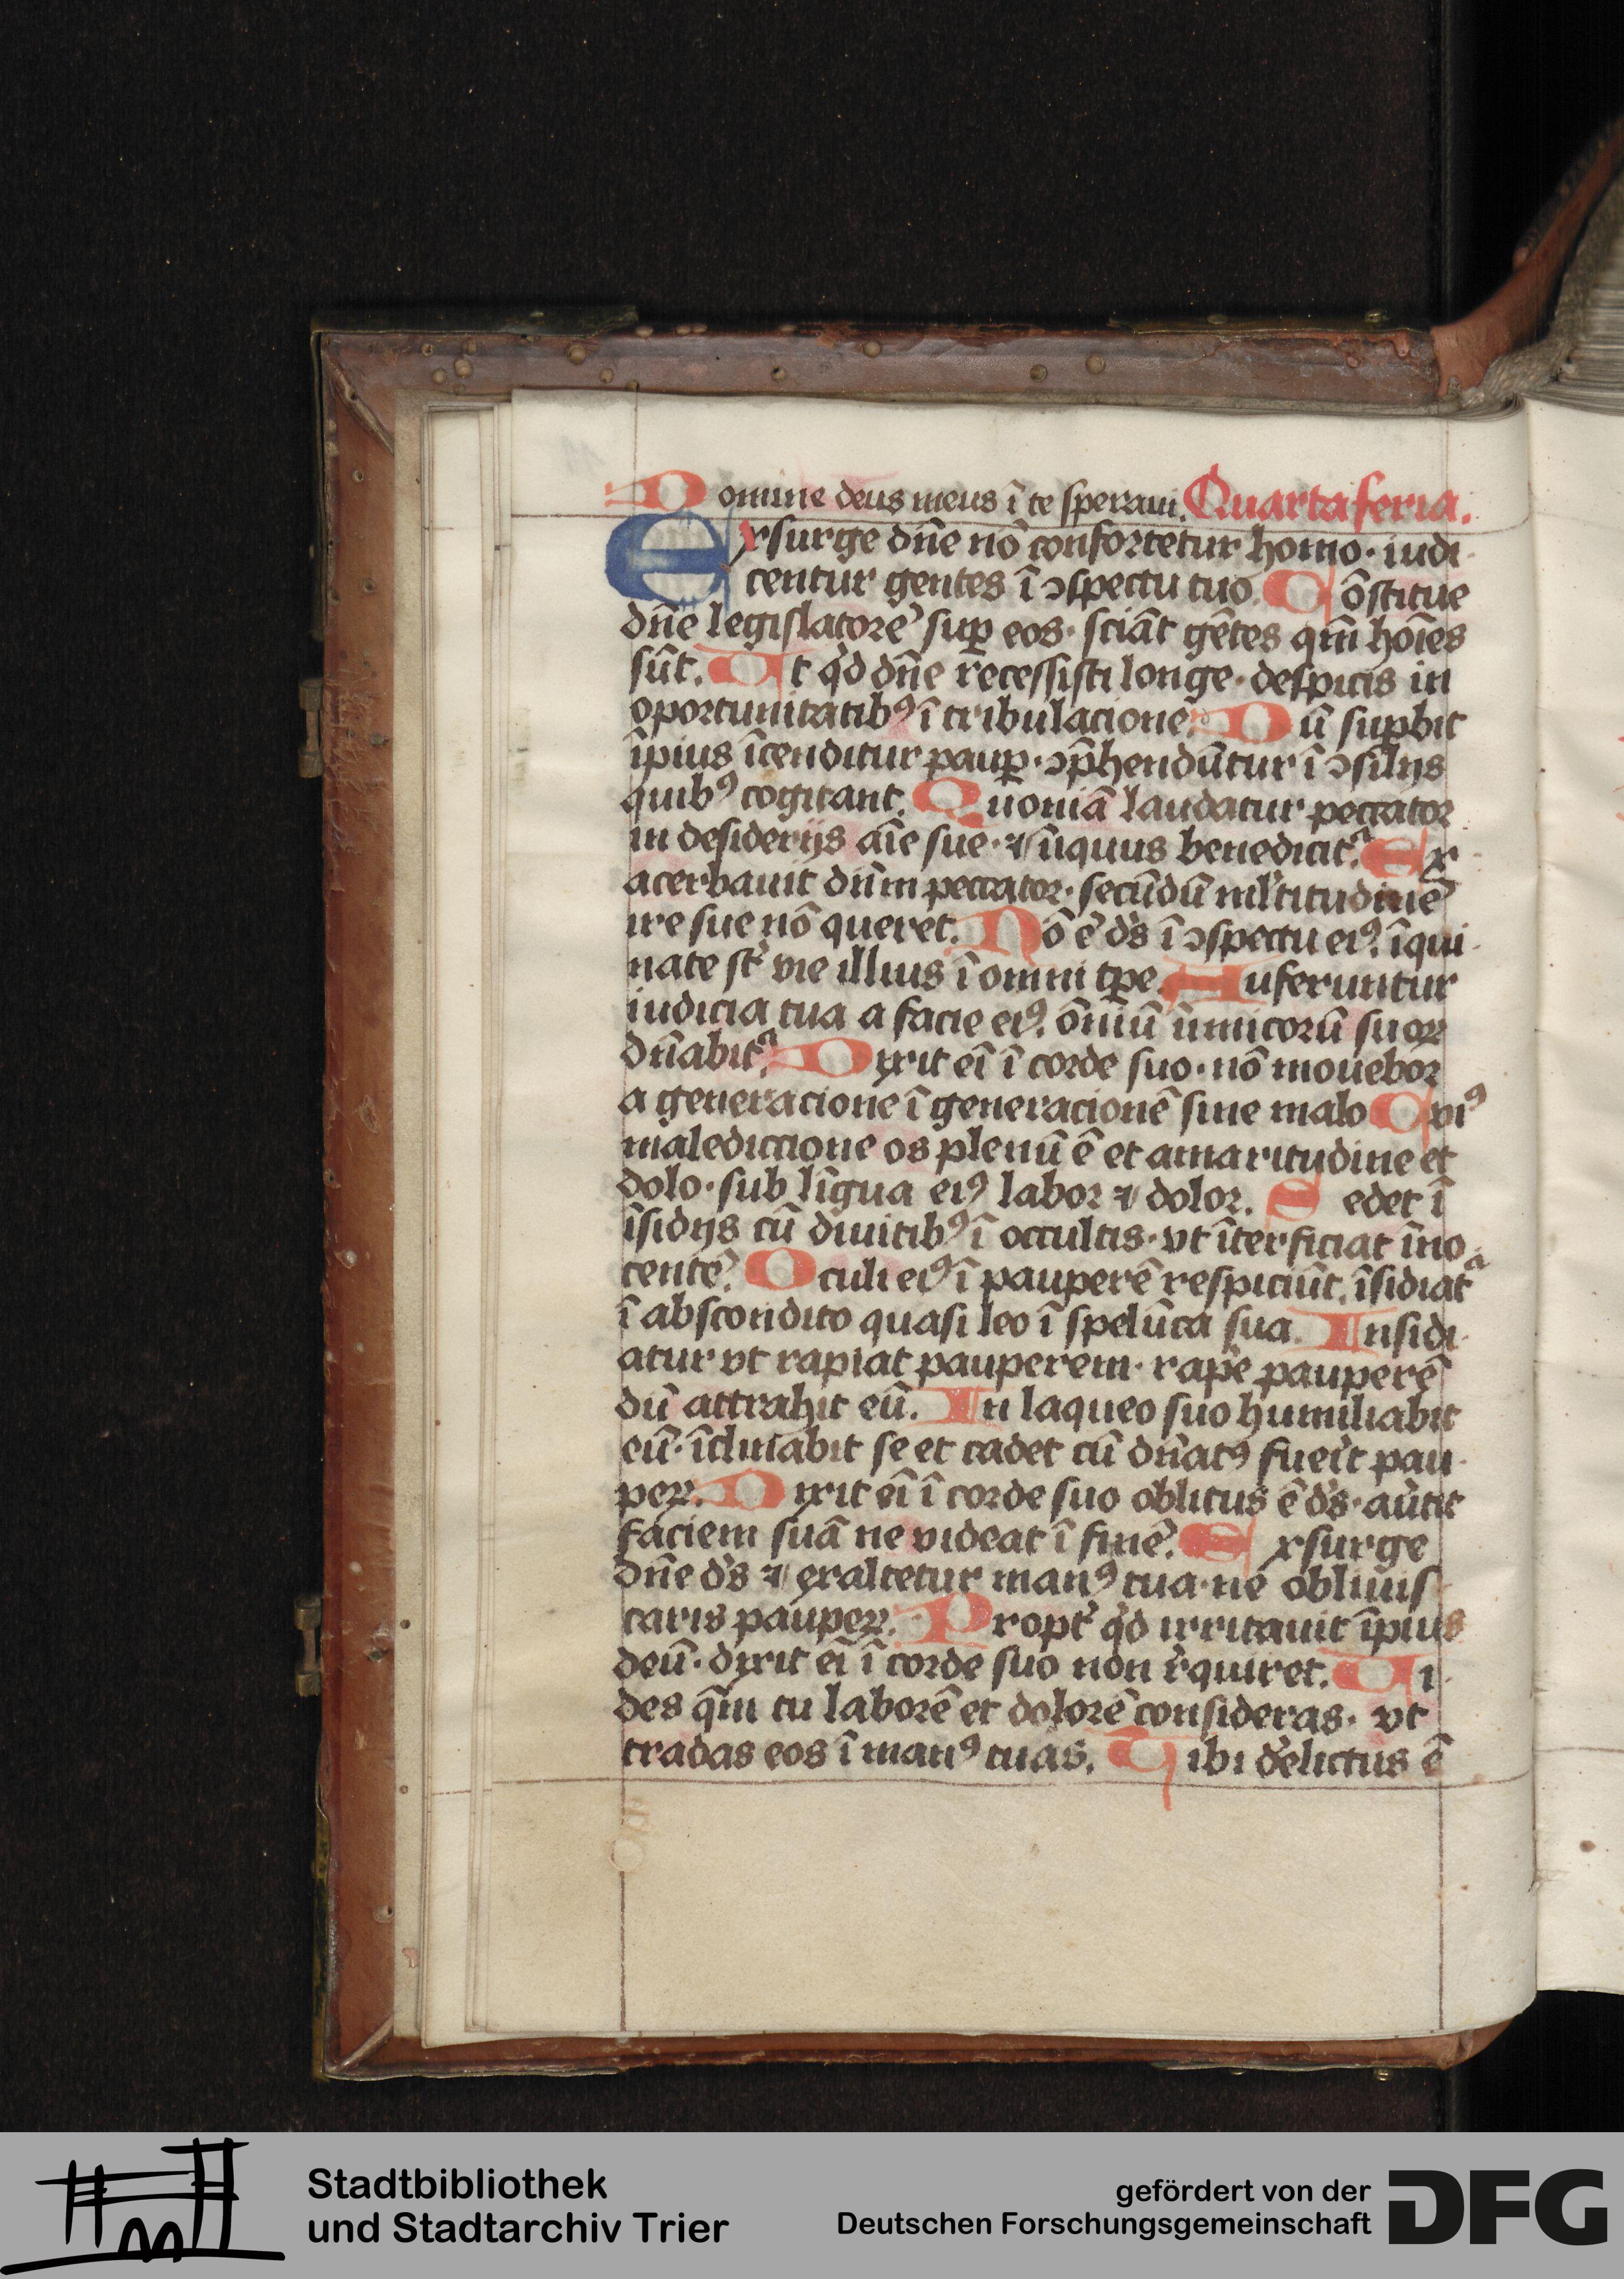 Domine deus meus ī te speraui. Quarta feria.
Exsurge dn̄e nō confortetur homo· iudi
centur gentes ī ɔspectu tuo. Cōstitue
dn̄e legislatorē suꝑ eos· sciāt gētes qm̄ hoīes
sūt. Ut qͥd dn̄e recessisti longe· despicis in
oportunitatibꝰ ī tribulacione. Dū supbit
īpius īcenditur pauꝑ· ɔp̄hendūtur ī ɔsilijs
quibꝰ cogitant. Quoniā laudatur peccator
in desiderijs aīe sue· ⁊ īiquus benedicitᷓ. Ex
acerbauit dn̄m peccator· secūdū ml̓titudinē
ire sue nō queret. Nō ē ds̄ ī ɔspectu eiꝰ. īqui
nate st̄ vie illius ī omni tp̄e. Auferuntur
iudicia tua a facie eiꝰ. ōmiū īimicorū suoꝝ
dn̄abitᷓ. Dixit eī ī corde suo· nō mouebor
a generacione ī generacionē sine malo Cviꝰ
malediccione os plenū ē et amaritudine et
dolo· sub līgua eiꝰ labor ⁊ dolor. Sedet ī
īsidijs cū diuitibꝰ ī occultis· vt īterficiat īno
centē. Oculi eiꝰ ī pauperē respiciūt. īsidiatᷓ
ī abscondito quasi leo ī spelūca sua. Insidi
atur vt rapiat pauperem· rape̓ pauperē
dū attrahit eū. In laqueo suo humiliabit
eū· īclinabit se et cadet cū dn̄atꝰ fuei̓t pau
per. Dixit eī ī corde suo oblitus ē ds̄· au̓tit
faciem suā ne videat ī finē. Exsurge
dn̄e ds̄ ⁊ exaltetur manꝰ tua· ne obliuis
caris pauper. Propt̓ qͥd irritauit īpius
deū· dixit eī ī corde suo non r̓quiret. Ui
des qm̄ tu laborē et dolorē consideras· vt
tradas eos ī manꝰ tuas. Tibi de̓lictus ē
Stadtbibliothek
und Stadtarchiv Trier
gefördert von der
Deutschen Forschungsgemeinschaft
DFG